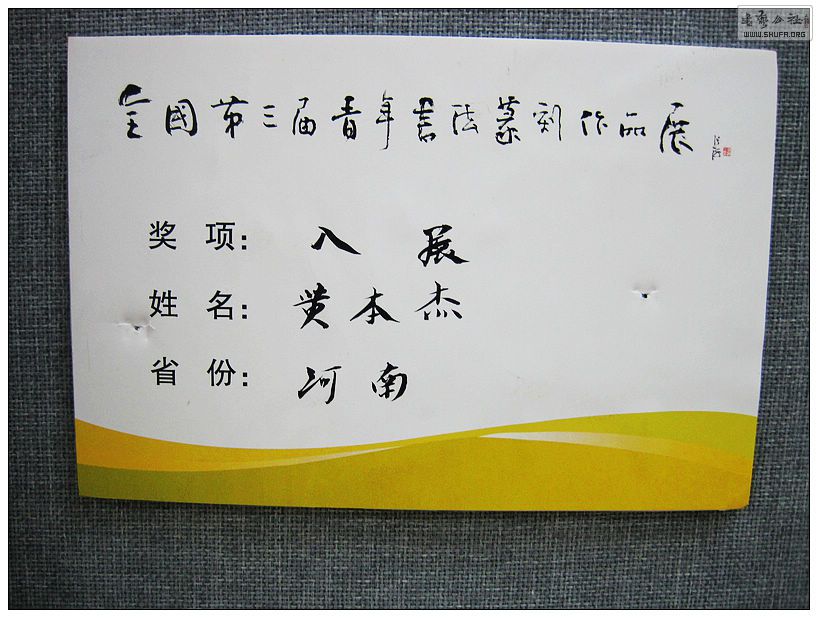 書法公社
WWW.SHUFA.ORG
全國第三届青年書法篆刻作品展
奖 项: 入 展
姓 名: 黄本杰
省 份: 河南